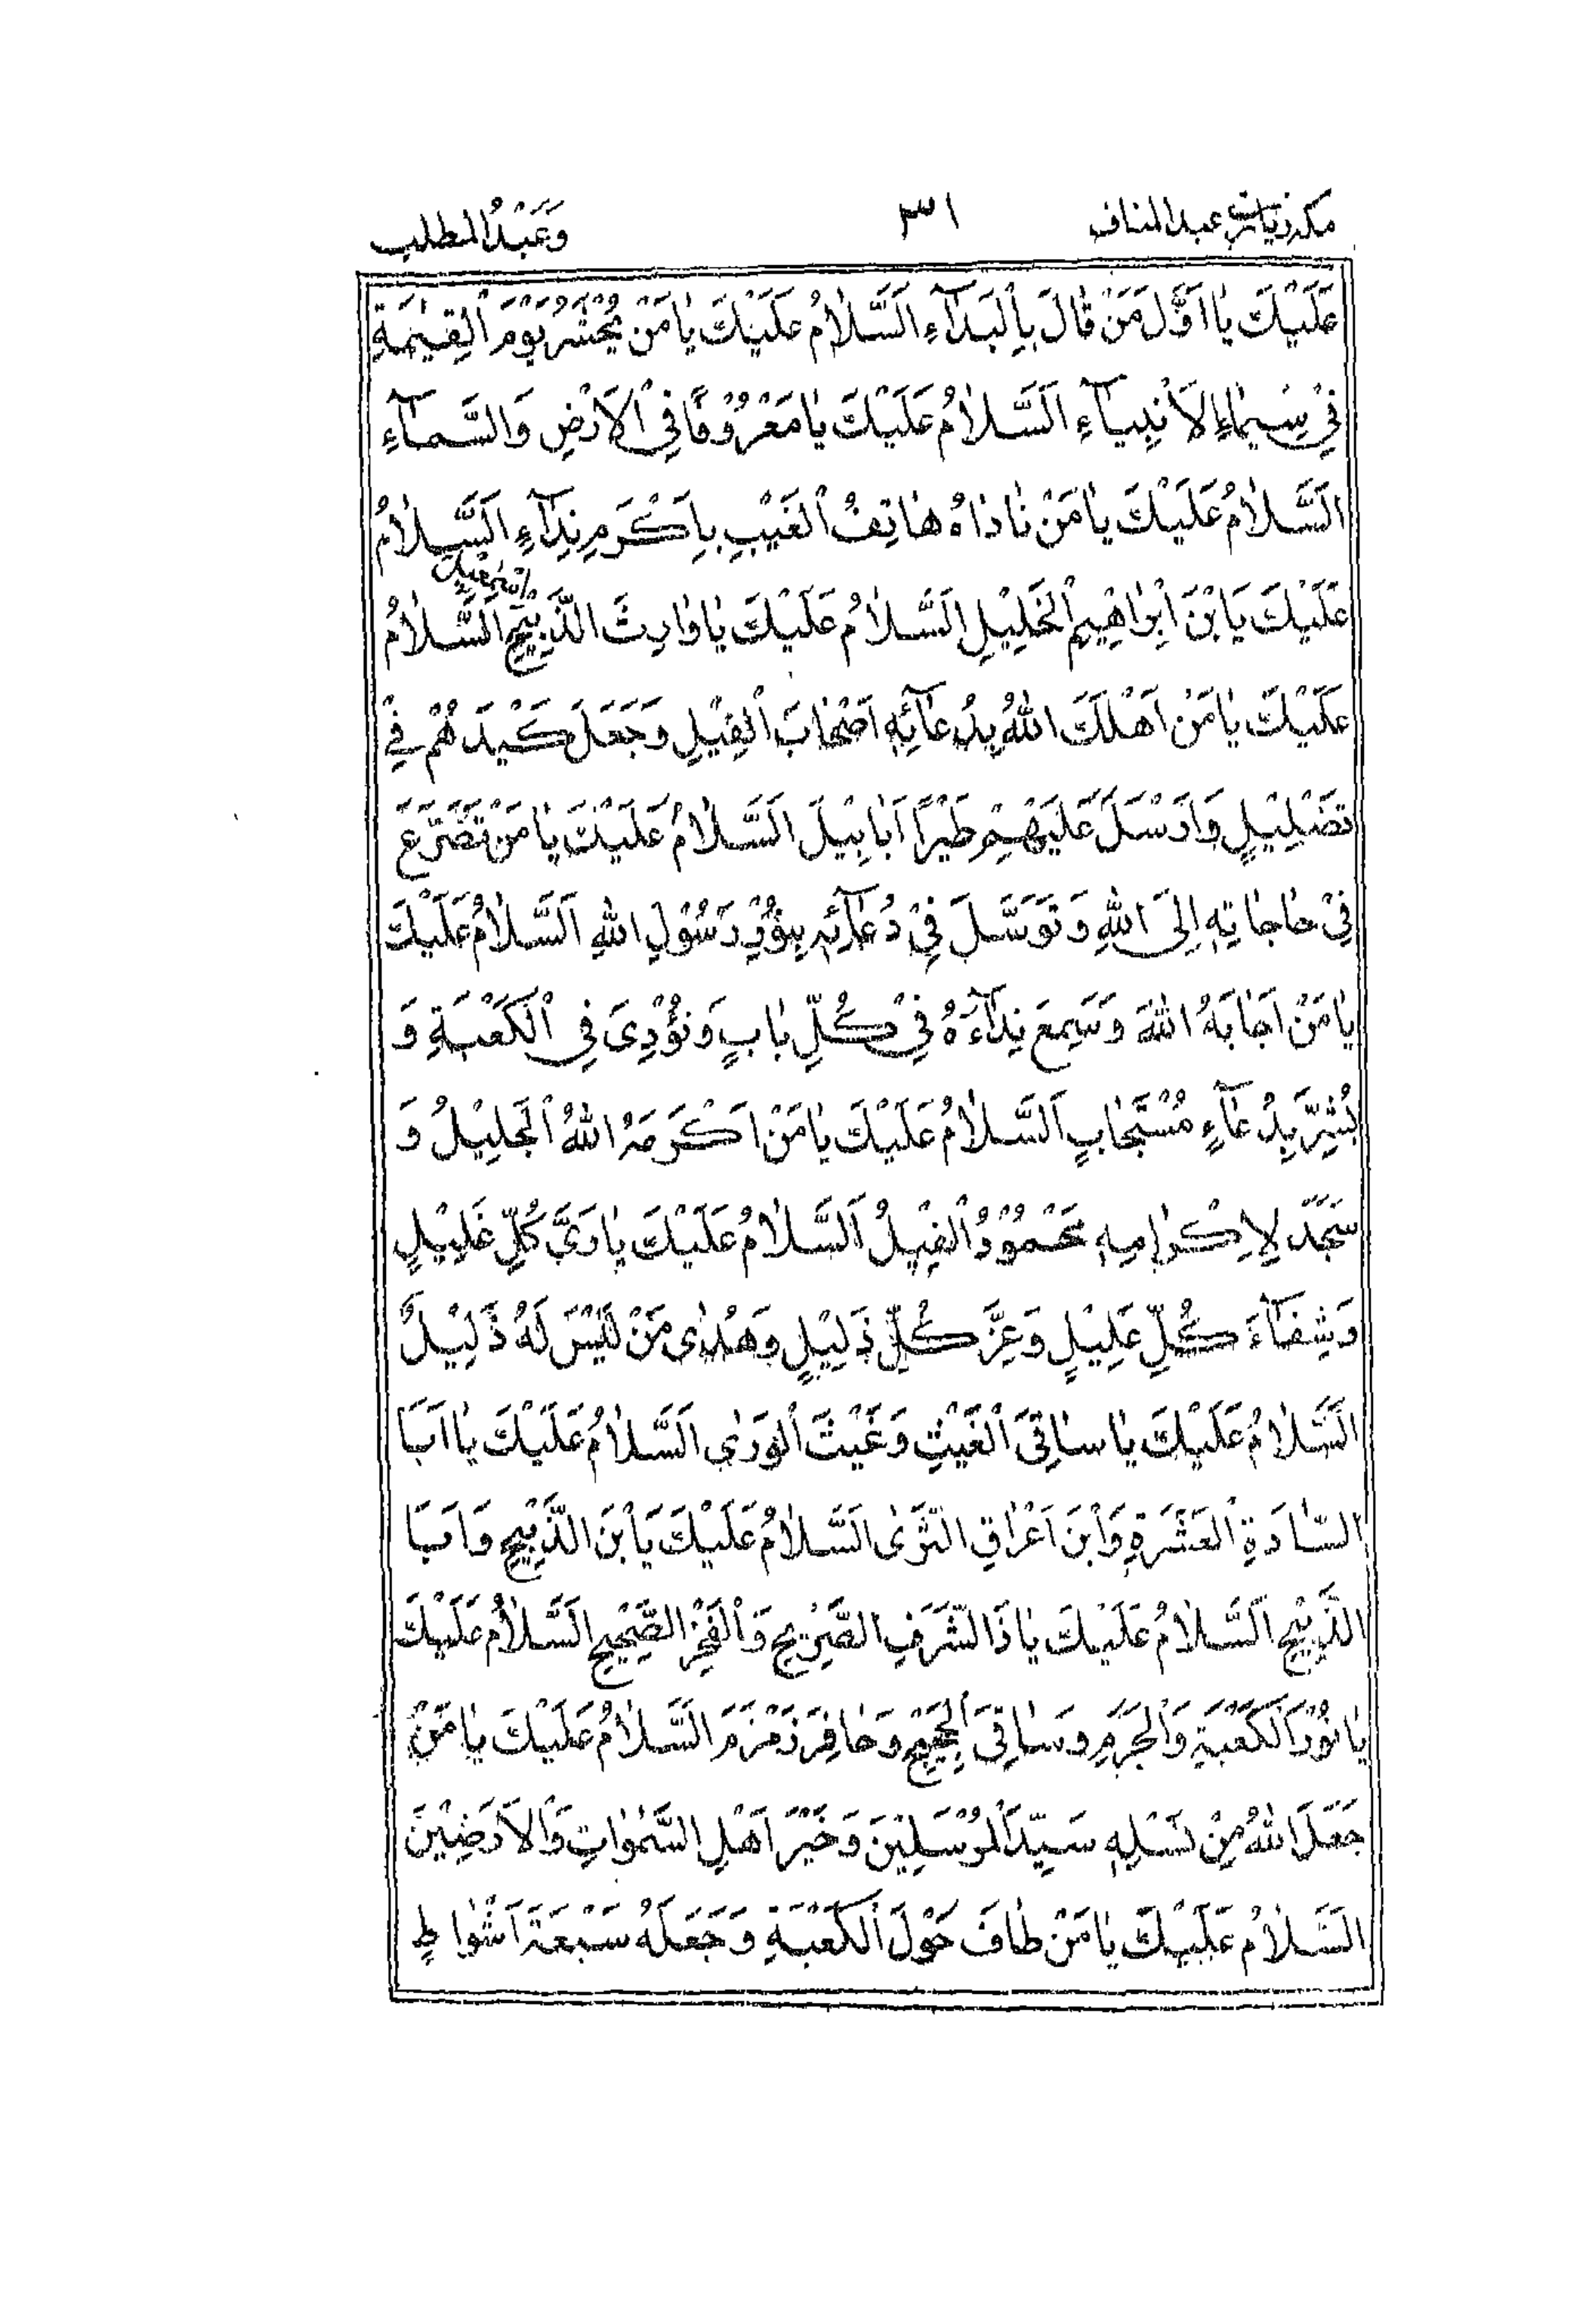 مکہ زیارت عبد المناف ۳۱ وَعَبْدُ المطلب
عَلَيْكَ يٰا اَوَّلَ مَنْ قٰالَ بِالْبَدٰآءِ اَلسَّلاٰمُ عَلَيْكَ يٰا مَنْ يُحْشَرُ يَوْمَ الْقِيٰمَةِ
فِيْ سِيْمٰاءِ الاَنْبِيٰآءِ اَلسَّلاٰمُ عَلَيْكَ يٰا مَعْرُوْفًا فِي الْاَرْضِ وَالسَّمٰآءِ
اَلسَّلاٰمُ عَلَيْكَ يٰا مَنْ نٰادٰاهُ هٰاتِفُ الْغَيْبِ بِاَكْرَمِ نِدٰآءٍ اَلسَّلاٰمُ
عَلَيْكَ يَابْنَ اِبْرٰاهِيْمَ الْخَلِيْلِ اَلسَّلاٰمُ عَلَيْكَ يٰا وٰارِثَ الذَّبِيْحِ اِسْمٰعِيْلَ اَلسَّلاٰمُ
عَلَيْكَ يٰا مَنْ اَهْلَكَ اللهُ بِدُعٰآئِهٖ اَصْحٰابَ الْفِيْلِ وَجَعَلَ كَيْدَهُمْ فِيْ
تَضْلِيْلٍ وَاَرْسَلَ عَلَيْهِمْ طَيْرًا اَبٰابِيْلَ اَلسَّلاٰمُ عَلَيْكَ يٰا مَنْ تَضَرَّعَ
فِيْ حٰاجٰاتِهٖ اِلَى اللهِ وَتَوَسَّلَ فِيْ دُعٰآئِهٖ بِنُوْرِ رَسُوْلِ اللهِ اَلسَّلاٰمُ عَلَيْكَ
يٰا مَنْ اَجٰابَهُ اللهُ وَسَمِعَ نِدٰآءَهُ فِيْ كُلِّ بٰابٍ وَنُوْدِىَ فِى الْكَعْبَةِ وَ
بُشِّرَ بِدُعٰآءٍ مُسْتَجٰابٍ اَلسَّلاٰمُ عَلَيْكَ يٰا مَنْ اَكْرَمَهُ اللهُ الْجَلِيْلُ وَ
سَجَدَ لِاِكْرٰامِهٖ مَحْمُوْدُ الْفِيْلُ اَلسَّلاٰمُ عَلَيْكَ يٰا رَىَّ كُلِّ غَلِيْلٍ
وَشِفٰآءَ كُلِّ عَلِيْلٍ وَعِزَّ كُلِّ ذَلِيْلٍ وَهُدٰى مَنْ لَيْسَ لَهُ ذَلِيْلٌ
اَلسَّلاٰمُ عَلَيْكَ يٰا سٰاقِىَ الْغَيْثِ وَغَيْثَ الْوَرٰي اَلسَّلاٰمُ عَلَيْكَ يٰا اَبَا
السّٰادَةِ الْعَشَرَةِ وَابْنَ اَعْرٰاقِ الثَّرٰى اَلسَّلاٰمُ عَلَيْكَ يَابْنَ الذَّبِيْحِ وَاَبَا
الذَّبِيْحِ اَلسَّلاٰمُ عَلَيْكَ يٰا ذَا الشَّرَفِ الصَّرِيْحِ وَالْفَخْرِ الصَّحِيْحِ اَلسَّلاٰمُ عَلَيْكَ
يٰا نُوْرَ الْكَعْبَةِ وَالْحَرَمِ وَسٰاقِىَ الْحَجِيْجِ وَحٰافِرَ زَمْزَمَ اَلسَّلاٰمُ عَلَيْكَ يٰا مَنْ
جَعَلَ اللهُ مِنْ نَسْلِهٖ سَيِّدَ الْمُرْسَلِيْنَ وَخَيْرَ اَهْلِ السَّمٰوٰاتِ وَالْاَرَضِيْنَ
اَلسَّلاٰمُ عَلَيْكَ يٰا مَنْ طٰافَ حَوْلَ الْكَعْبَةِ وَجَعَلَهُ سَبْعَةَ اَشْوٰاطٍ